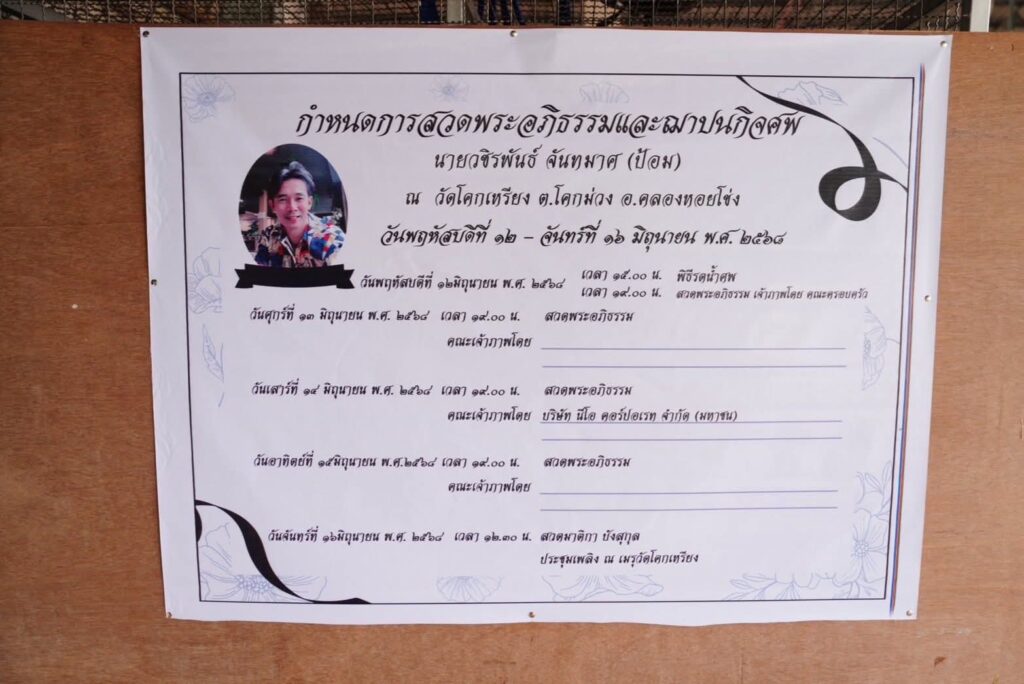 กำหนดการสวดพระอภิธรรมและฌาปนกิจศพ
นายวชิรพันธ์ จันทมาศ (ป้อม)
ณ วัดโคกเหรียง ต.โคกม่วง อ.คลองหอยโข่ง
วันพฤหัสบดีที่ ๑๒ - จันทร์ที่ ๑๖ มิถุนายน พ.ศ. ๒๕๖๘
วันพฤหัสบดีที่ ๑๒มิถุนายน พ.ศ. ๒๕๖๘ เวลา ๑๕.๐๐ น. พิธีรดน้ำศพ
เวลา ๑๙.๐๐ น. สวดพระอภิธรรม เจ้าภาพโดย คณะครอบครัว
วันศุกร์ที่ ๑๓ มิถุนายน พ.ศ. ๒๕๖๘ เวลา ๑๙.๐๐ น. สวดพระอภิธรรม
คณะเจ้าภาพโดย
วันเสาร์ที่ ๑๔ มิถุนายน พ.ศ. ๒๕๖๘ เวลา ๑๙.๐๐ น. สวดพระอภิธรรม
คณะเจ้าภาพโดย บริษัท นีโอ คอร์ปอเรท จำกัด (มหาชน)
วันอาทิตย์ที่ ๑๕มิถุนายน พ.ศ.๒๕๖๘ เวลา ๑๙.๐๐ น. สวดพระอภิธรรม
คณะเจ้าภาพโดย
วันจันทร์ที่ ๑๖มิถุนายน พ.ศ. ๒๕๖๘ เวลา ๑๒.๓๐ น. สวดมาติกา บังสุกุล
ประชุมเพลิง ณ เมรุวัดโคกเหรียง